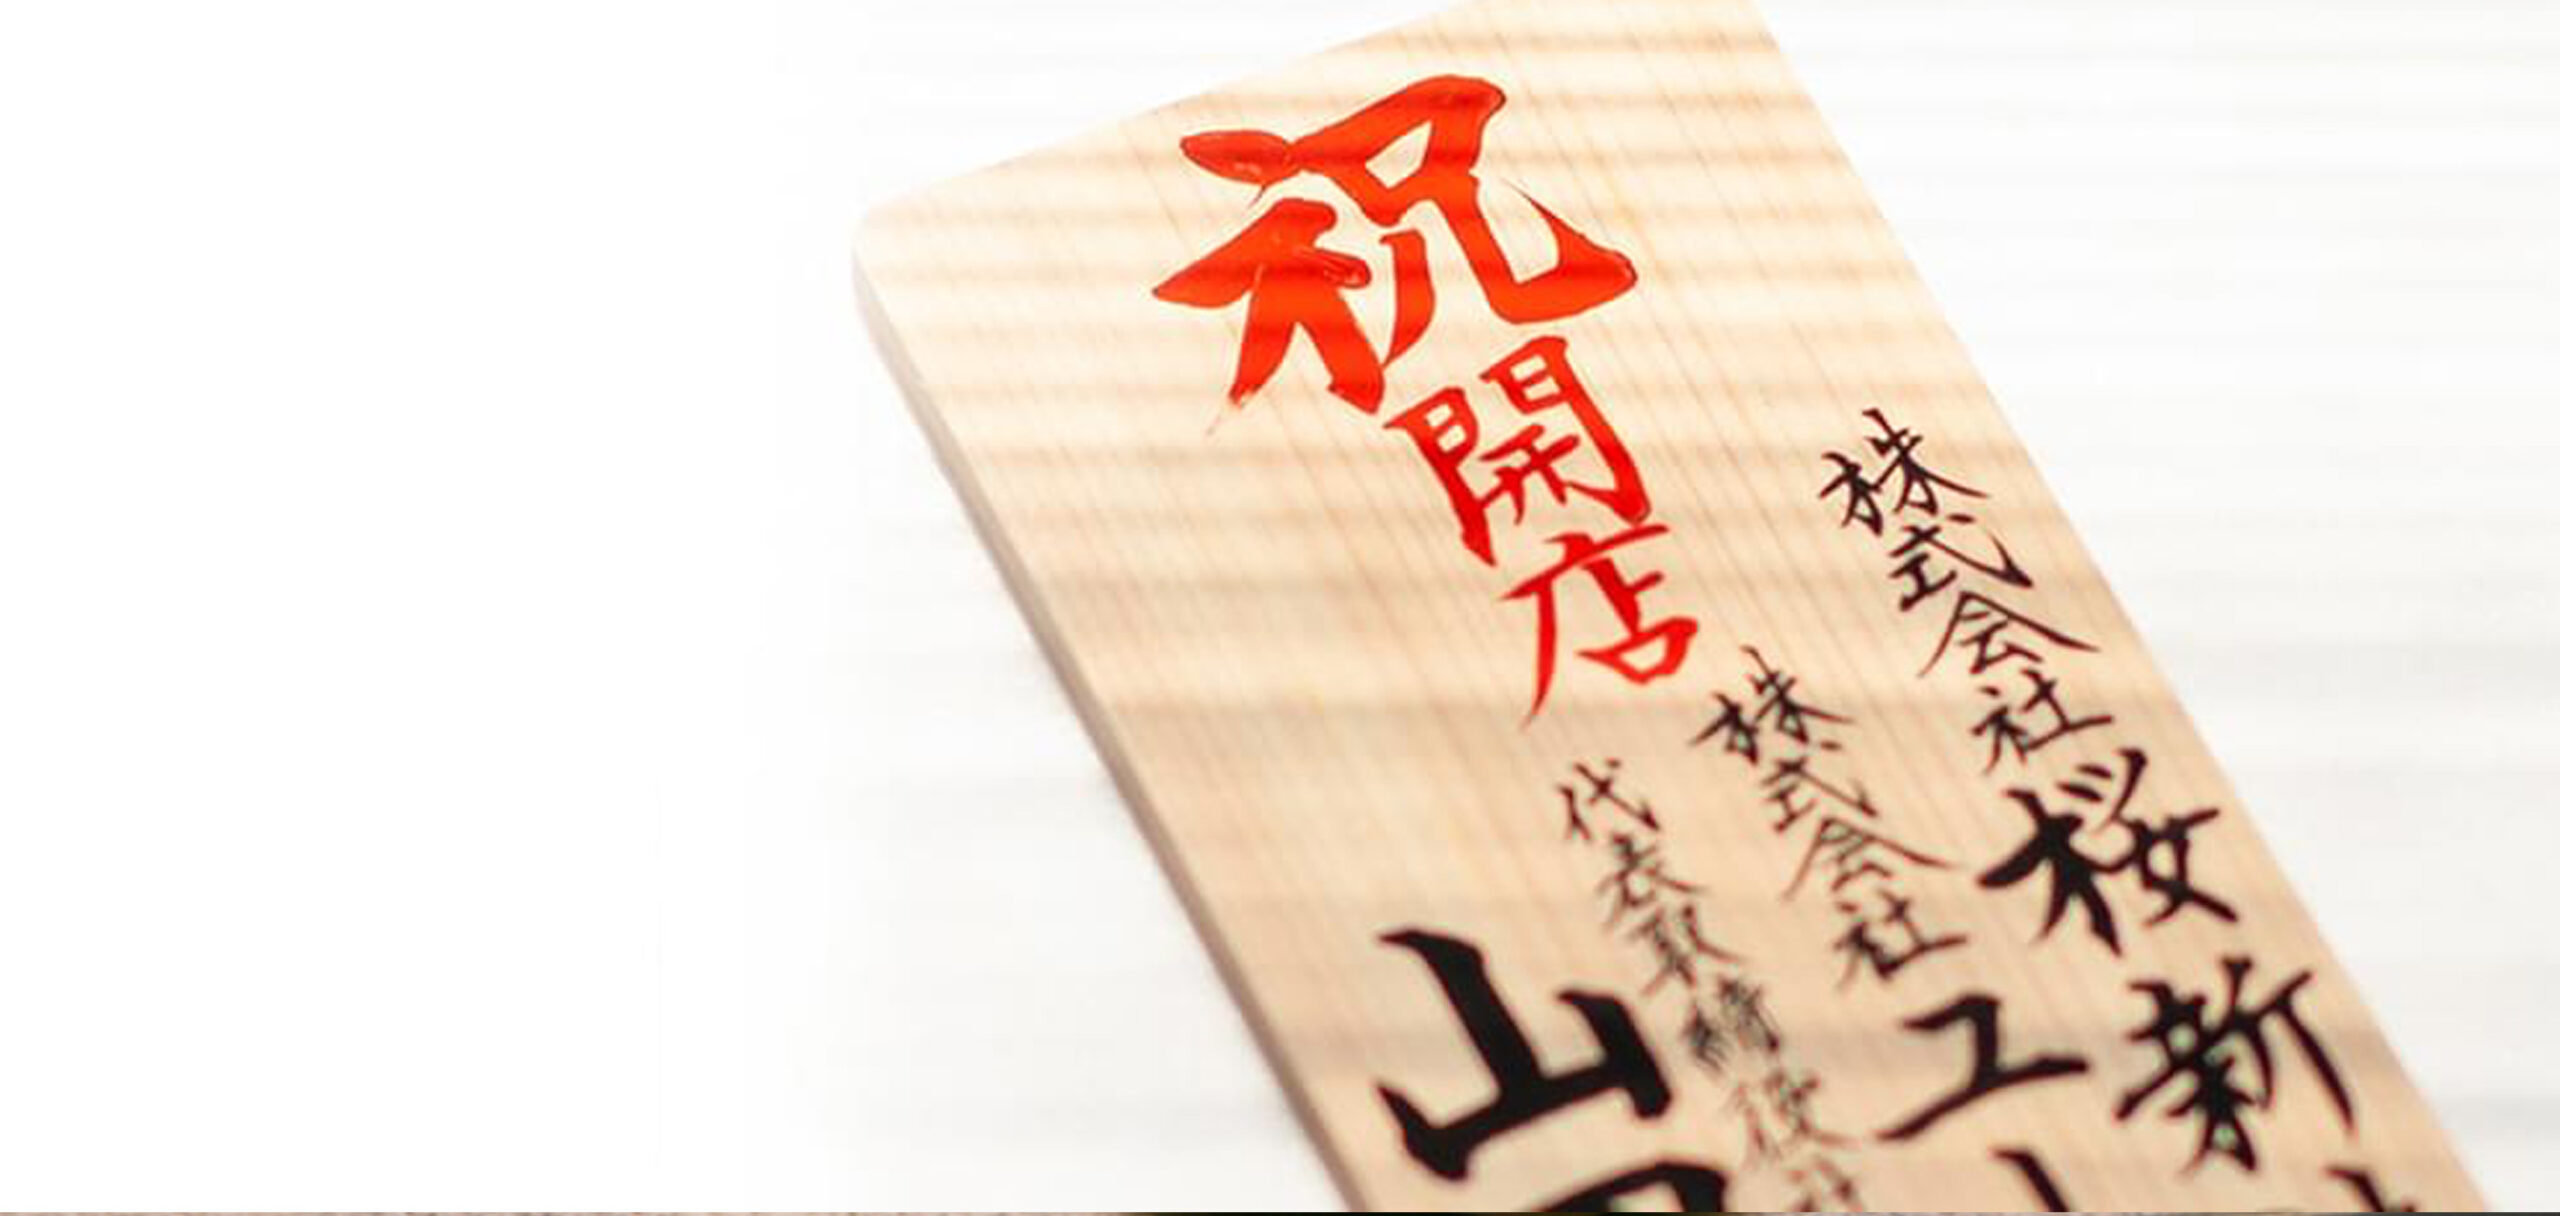 祝開店
株式会社桜新
株式会社エ
代表取締役社
山